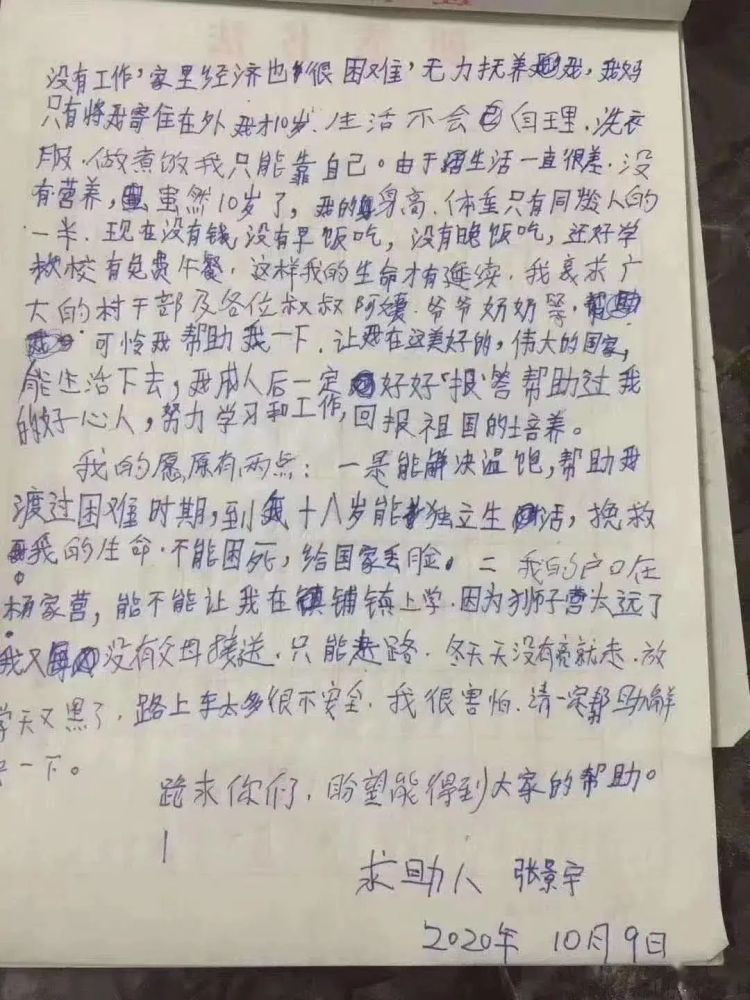 没有工作，家里经济也很困难，无力抚养我，我妈
只有将我寄住在外我才10岁．生活不会自理．洗衣
服．做煮饭我只能靠自己。由于生活一直很差．没
有营养，虽然10岁了，我的身高．体重只有同龄人的
一半．现在没有钱，没有早饭吃，没有晚饭吃，还好学
校有免费午餐．这样我的生命才有延续．我哀求广
大的村干部及各位叔叔阿姨．爷爷奶奶等．
可怜我帮助我一下．让我在这美好的，伟大的国家，
能生活下去，我成人后一定好好报答帮助过我
的好心人，努力学习和工作，回报祖国的培养。
我的愿原有两点：一是能解决温饱，帮助我
渡过困难时期，到我十八岁能独立生活，挽救
我的生命．不能困死，给国家丢脸。二我的户口在
杨家营，能不能让我在镇铺镇上学．因为狮子营太远了
我又没有父母接送．只能走路．冬天天没有亮就走．放
学天又黑了．路上车太多很不安全．我很害怕．请一定帮助解
一下。
跪求你们，盼望能得到大家的帮助。
求助人 张景宇
2020年 10月9日